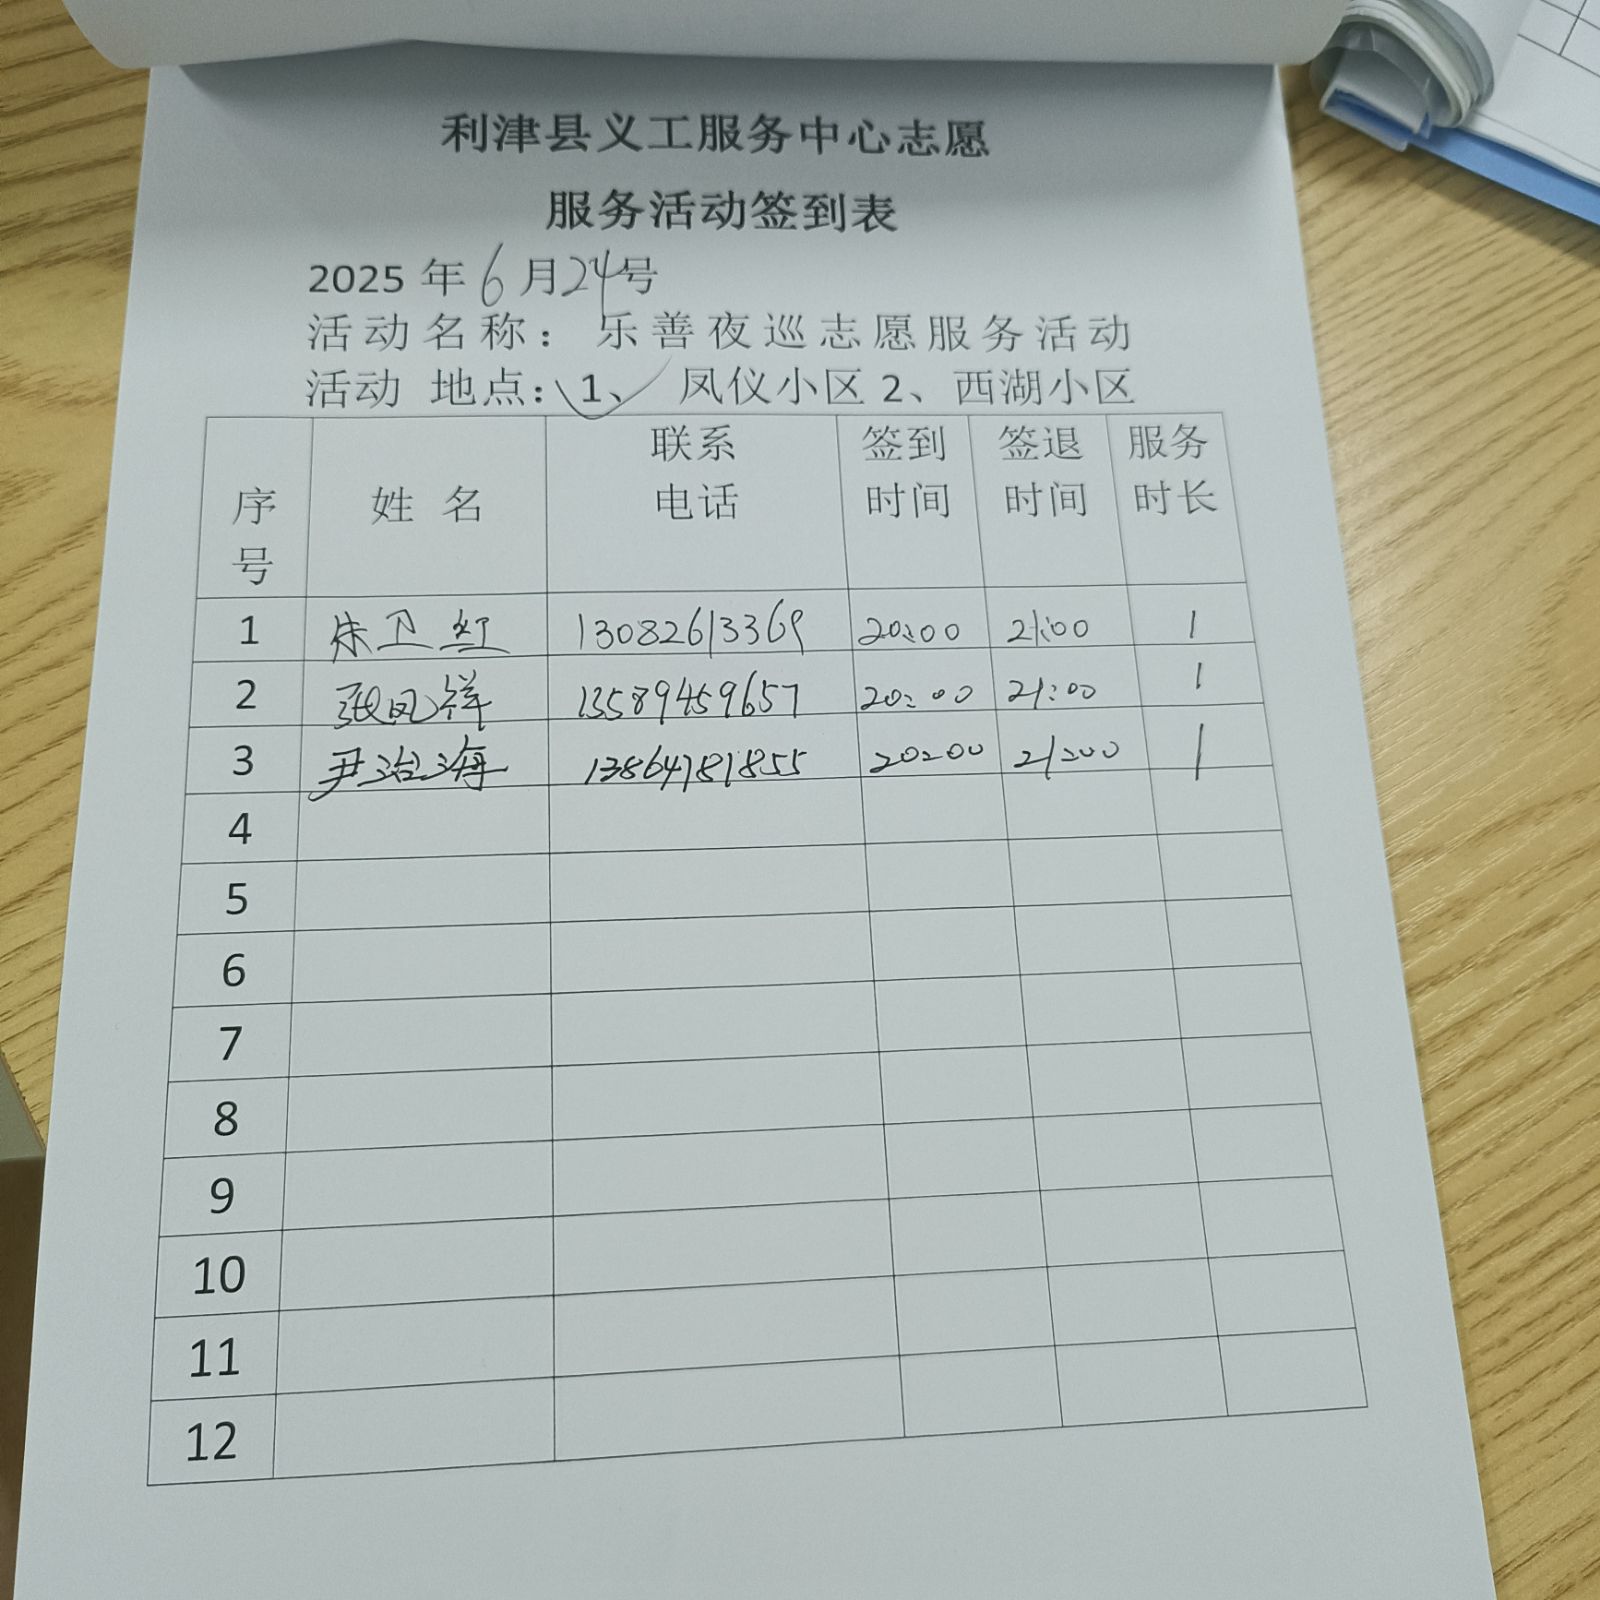 利津县义工服务中心志愿
服务活动签到表
2025 年 6 月 24 号
活动名称：乐善夜巡志愿服务活动
活动 地点：1、 凤仪小区 2、西湖小区
序号 姓 名 联系电话 签到时间 签退时间 服务时长
1 朱卫红 13082613369 20:00 21:00 1
2 张凤祥 13589459657 20:00 21:00 1
3 尹治海 13864781855 20:00 21:00 1
4
5
6
7
8
9
10
11
12